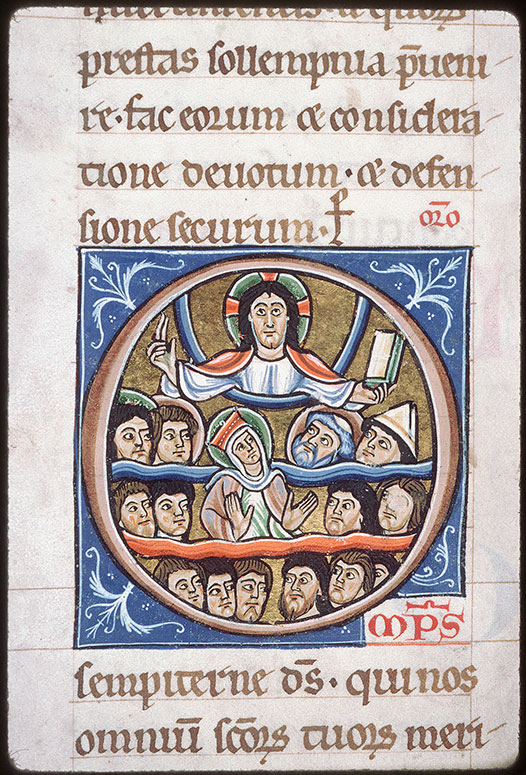 prestas sollempnia p̄ueni-
re·fac eorum ⁊ considera-
tione deuotum·⁊ defen-
sione securum·
or̄o
O mp̄s
sempiterne d̄s·qui nos
omniū sc̄orꝝ tuorꝝ meri-